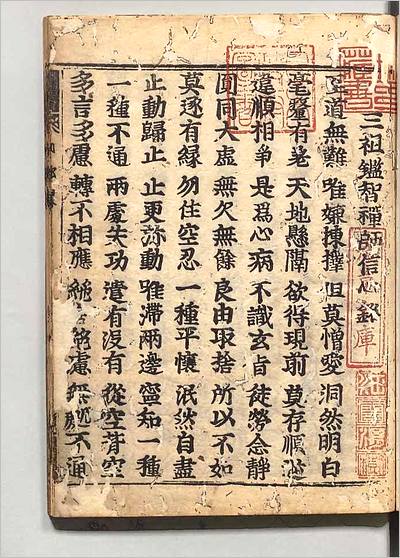 三祖鑑智禪師信心銘
至道無難　唯嫌揀擇　但莫憎愛　洞然明白
毫釐有差　天地懸隔　欲得現前　莫存順逆
違順相爭　是爲心病　不識玄旨　徒勞念靜
圓同大虛　無欠無餘　良由取捨　所以不如
莫逐有緣　勿住空忍　一種平懷　泯然自盡
止動歸止　止更弥動　唯滯兩邊　寧知一種
一種不通　兩處失功　遣有沒有　從空背空
多言多慮　轉不相應　絶言絶慮　無處不通